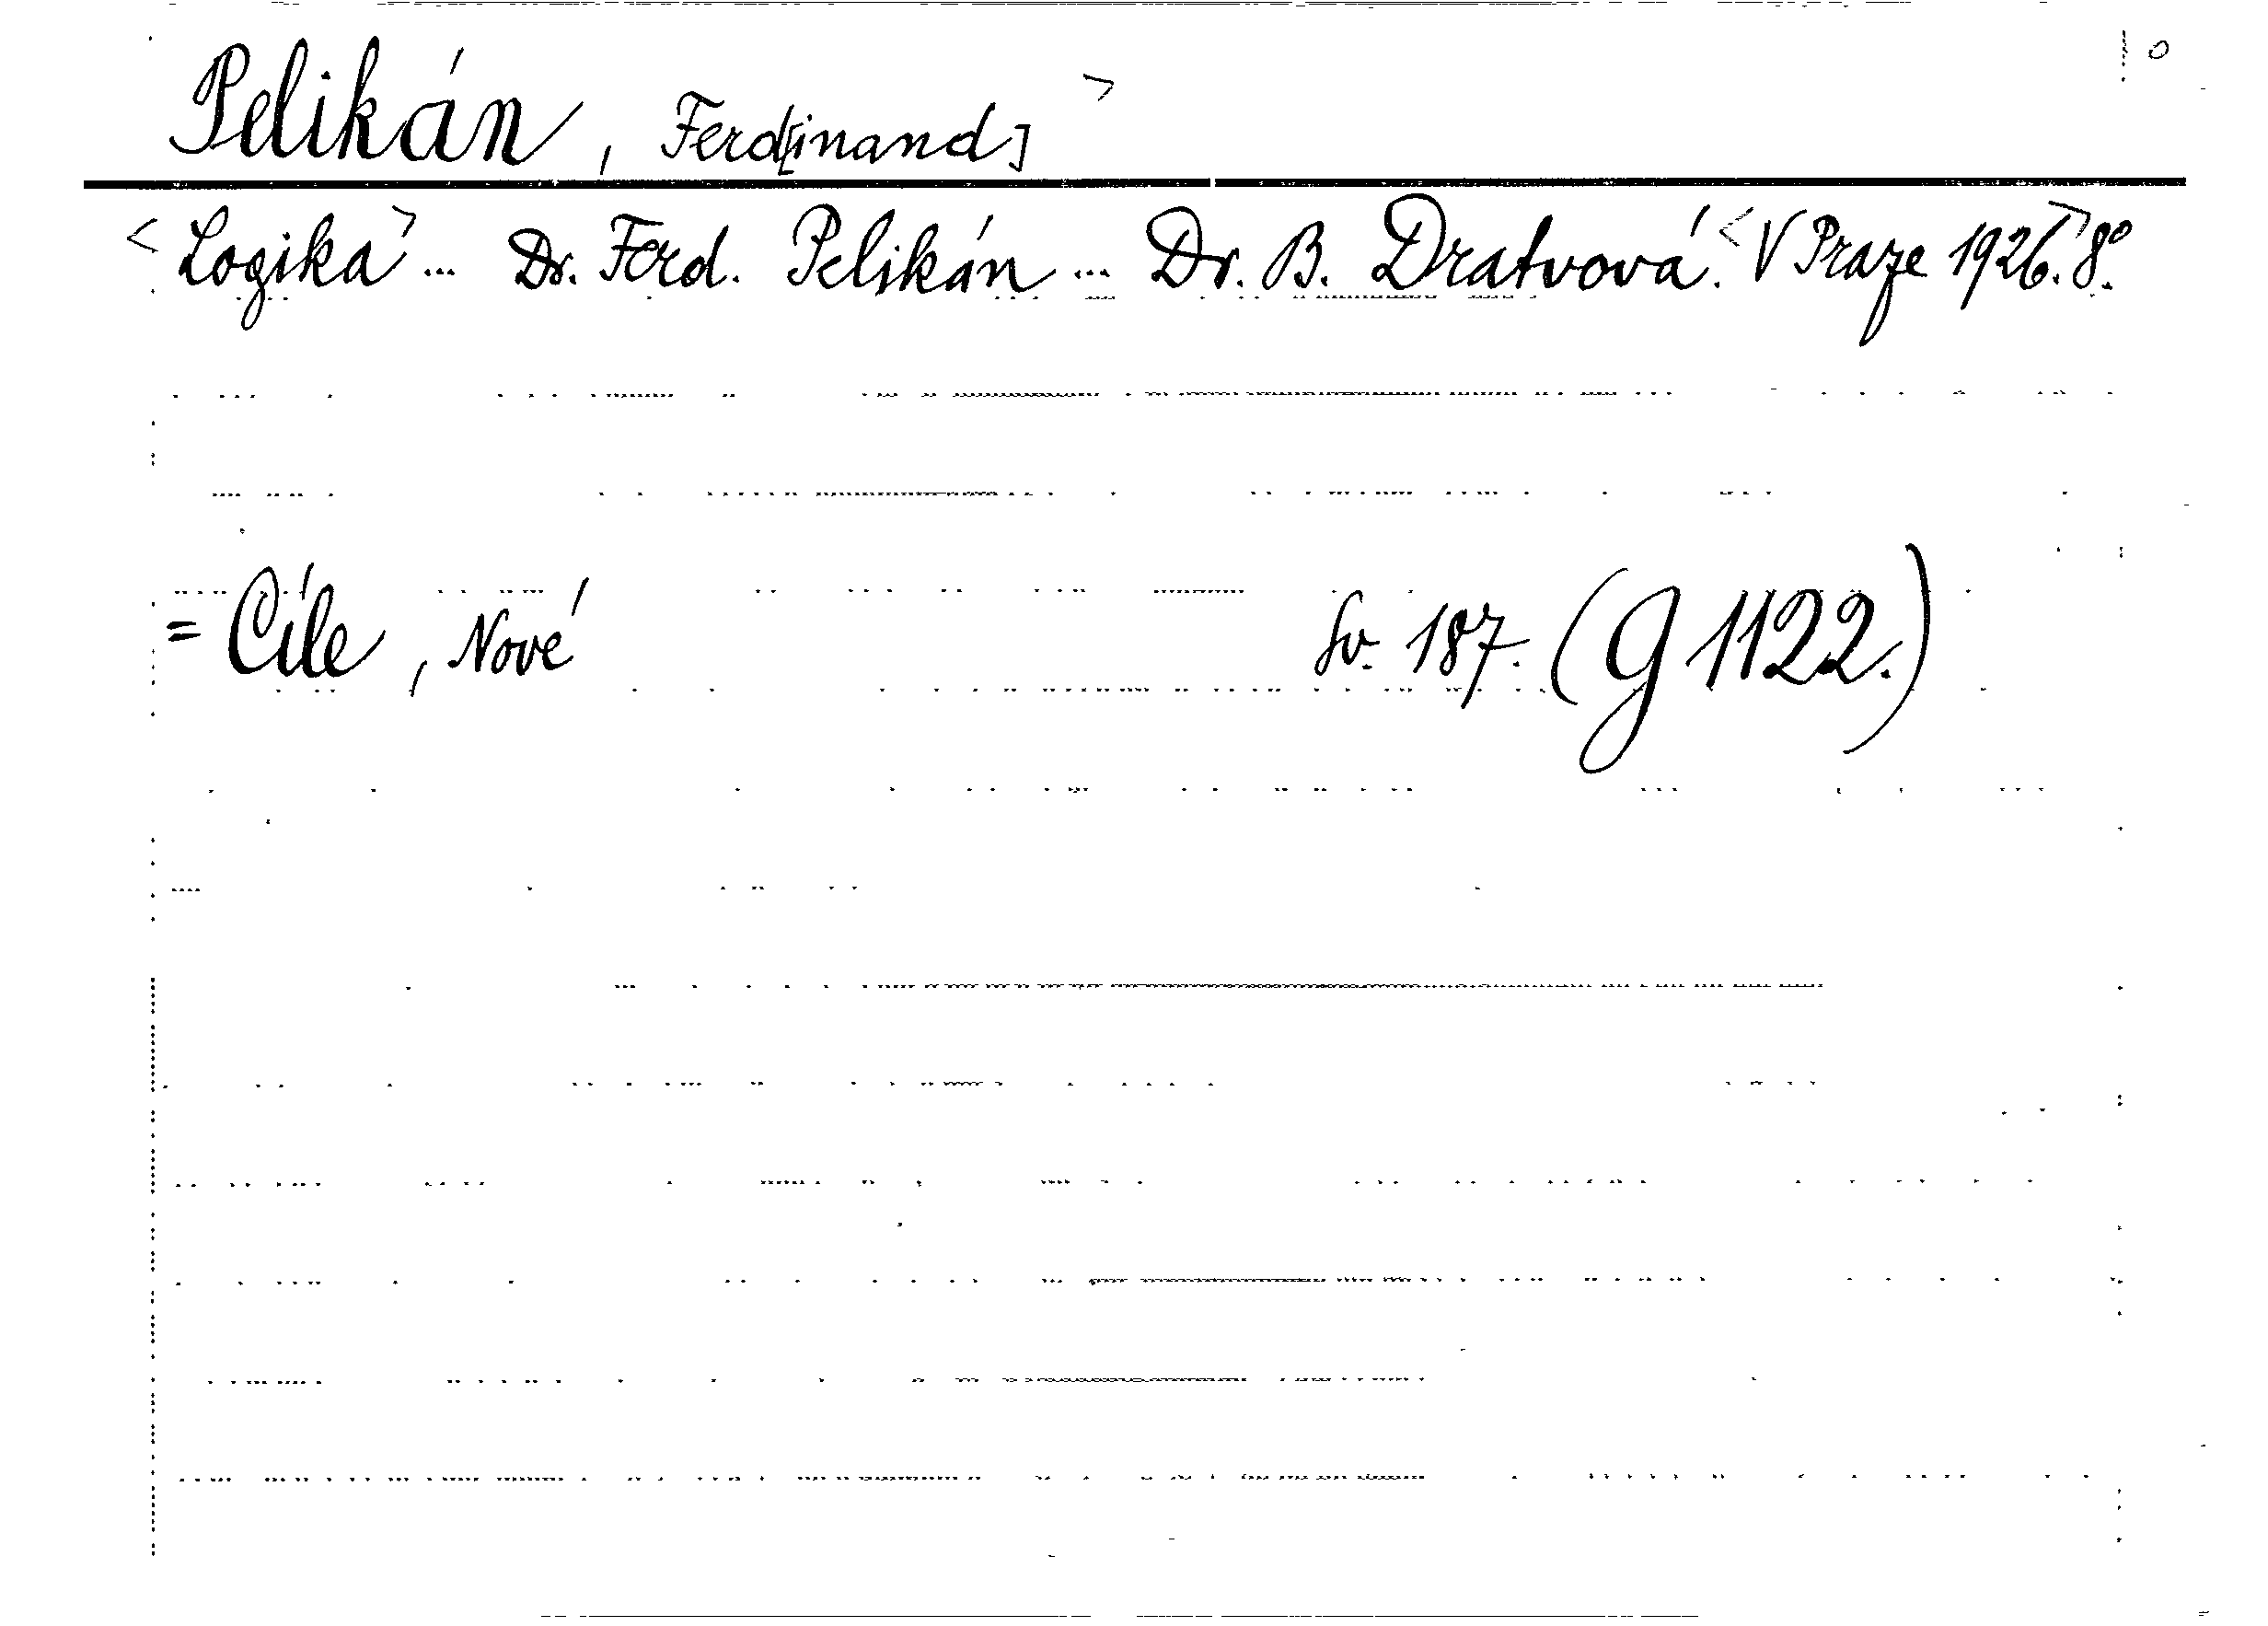 Pelikán, Ferd[inand] > o
<Logika> ... Dr. Ferd. Pelikán ... Dr. B. Dratvová. <V Praze 1926.> 8º.
= Cíle, Nové Sv. 187. (G 1122.)